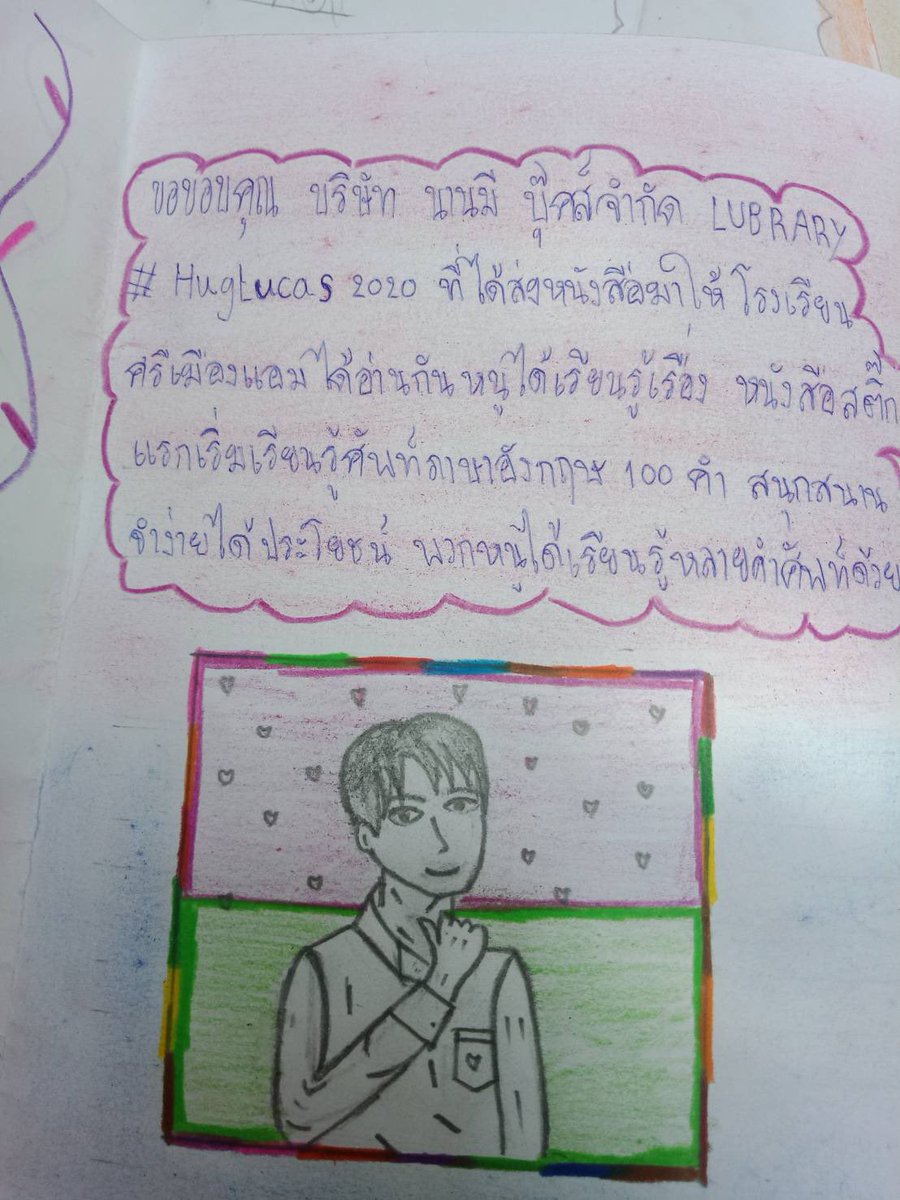 ขอขอบคุณ บริษัท นานมี บุ๊คส์จำกัด LUBRARY
# HugLucas 2020 ที่ได้ส่งหนังสือมาให้ โรงเรียน
ศรีเมืองแอมได้อ่านกันหนูได้เรียนรู้เรื่อง หนังสือสติ๊ก
แรกเริ่มเรียนรู้ศัพท์ภาษาอังกฤษ 100 คำ สนุกสนาน
จำง่ายได้ประโยชน์ พวกหนูได้เรียนรู้หลายคำศัพท์ด้วย